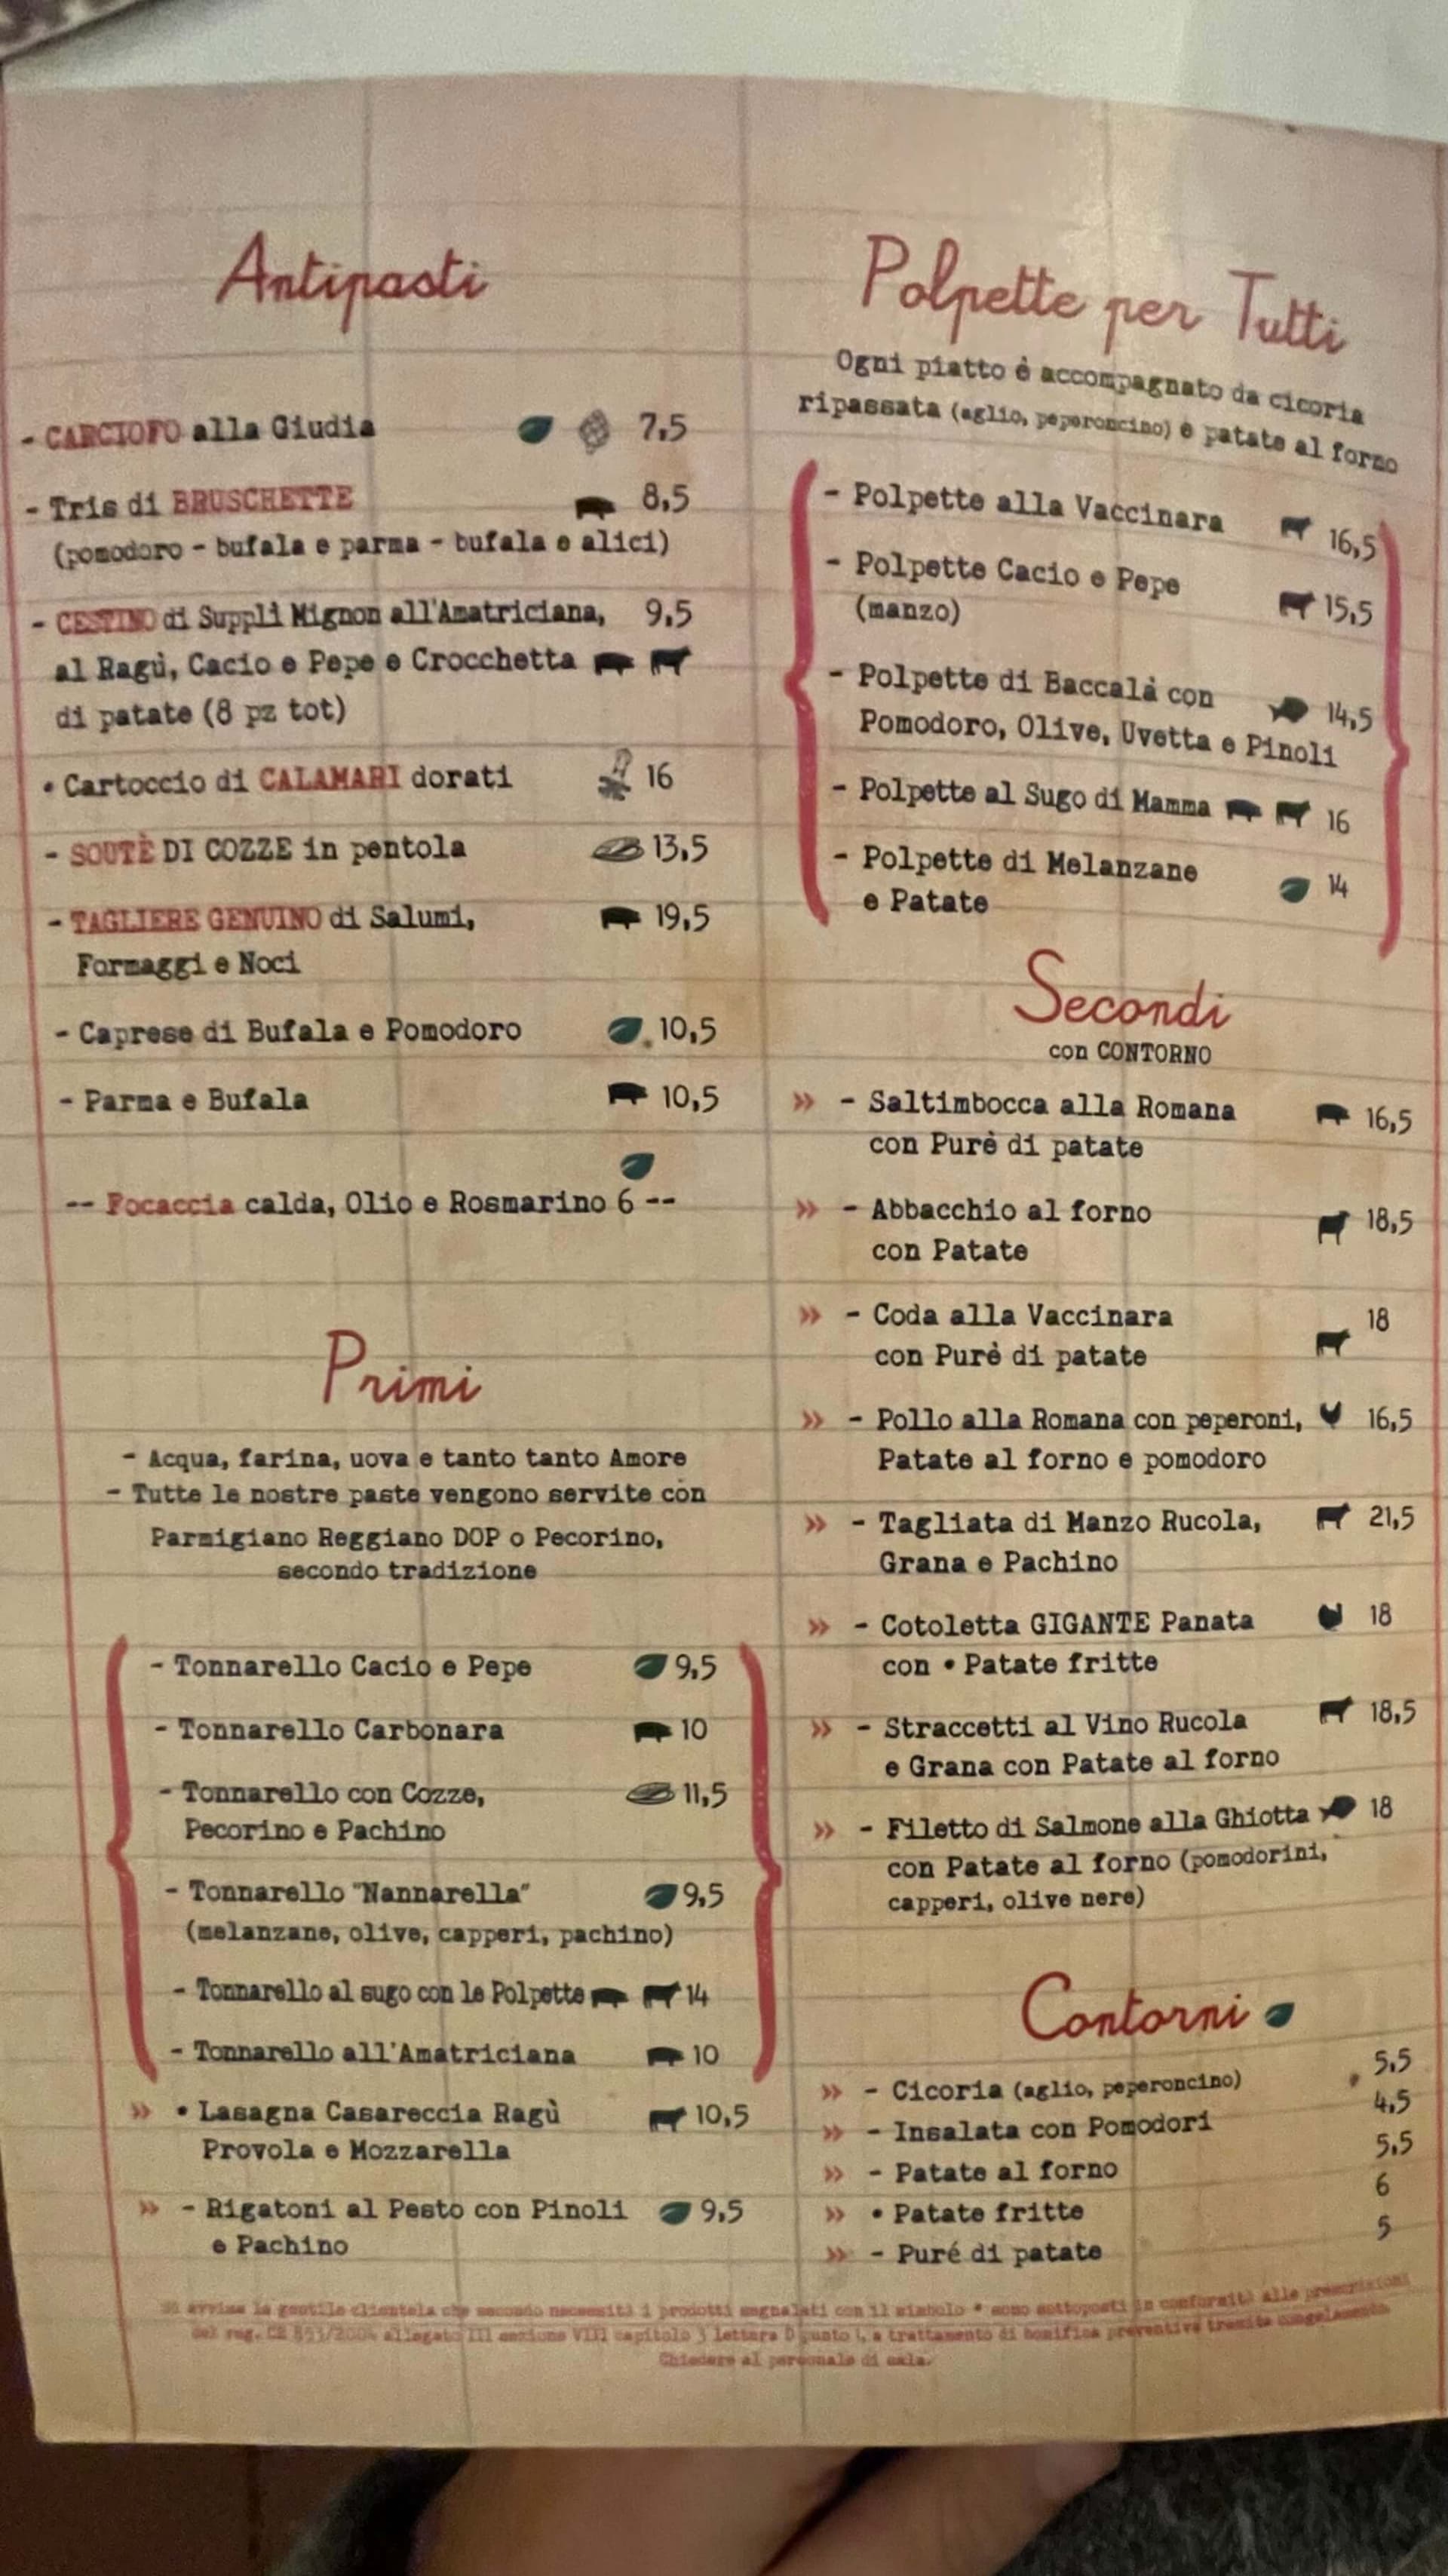 Antipasti
- CARCIOFO alla Giudia 7,5
- Tris di BRUSCHETTE 8,5
(pomodoro - bufala e parma - bufala e alici)
- CESTINO di Supplì Mignon all'Amatriciana, 9,5
al Ragù, Cacio e Pepe e Crocchetta
di patate (8 pz tot)
• Cartoccio di CALAMARI dorati 16
- SOUTÈ DI COZZE in pentola 13,5
- TAGLIERE GENUINO di Salumi, 19,5
Formaggi e Noci
- Caprese di Bufala e Pomodoro 10,5
- Parma e Bufala 10,5
-- Focaccia calda, Olio e Rosmarino 6 --
Primi
- Acqua, farina, uova e tanto tanto Amore
- Tutte le nostre paste vengono servite con
Parmigiano Reggiano DOP o Pecorino,
secondo tradizione
- Tonnarello Cacio e Pepe 9,5
- Tonnarello Carbonara 10
- Tonnarello con Cozze, 11,5
Pecorino e Pachino
- Tonnarello "Nannarella" 9,5
(melanzane, olive, capperi, pachino)
- Tonnarello al sugo con le Polpette 14
- Tonnarello all'Amatriciana 10
» • Lasagna Casareccia Ragù 10,5
Provola e Mozzarella
» - Rigatoni al Pesto con Pinoli 9,5
e Pachino
Polpette per Tutti
Ogni piatto è accompagnato da cicoria
ripassata (aglio, peperoncino) e patate al forno
- Polpette alla Vaccinara 16,5
- Polpette Cacio e Pepe 15,5
(manzo)
- Polpette di Baccalà con 14,5
Pomodoro, Olive, Uvetta e Pinoli
- Polpette al Sugo di Mamma 16
- Polpette di Melanzane 14
e Patate
Secondi
con CONTORNO
» - Saltimbocca alla Romana 16,5
con Purè di patate
» - Abbacchio al forno 18,5
con Patate
» - Coda alla Vaccinara 18
con Purè di patate
» - Pollo alla Romana con peperoni, 16,5
Patate al forno e pomodoro
» - Tagliata di Manzo Rucola, 21,5
Grana e Pachino
» - Cotoletta GIGANTE Panata 18
con • Patate fritte
» - Straccetti al Vino Rucola 18,5
e Grana con Patate al forno
» - Filetto di Salmone alla Ghiotta 18
con Patate al forno (pomodorini,
capperi, olive nere)
Contorni
» - Cicoria (aglio, peperoncino) 5,5
» - Insalata con Pomodori 4,5
» - Patate al forno 5,5
» • Patate fritte 6
» - Puré di patate 5
Si avvisa la gentile clientela che secondo necessità i prodotti segnalati con il simbolo • sono sottoposti in conformità alle prescrizioni
del reg. CE 853/2004 allegato III sezione VIII capitolo 3 lettera D punto 1, a trattamento di bonifica preventiva tramite congelamento.
Chiedere al personale di sala.